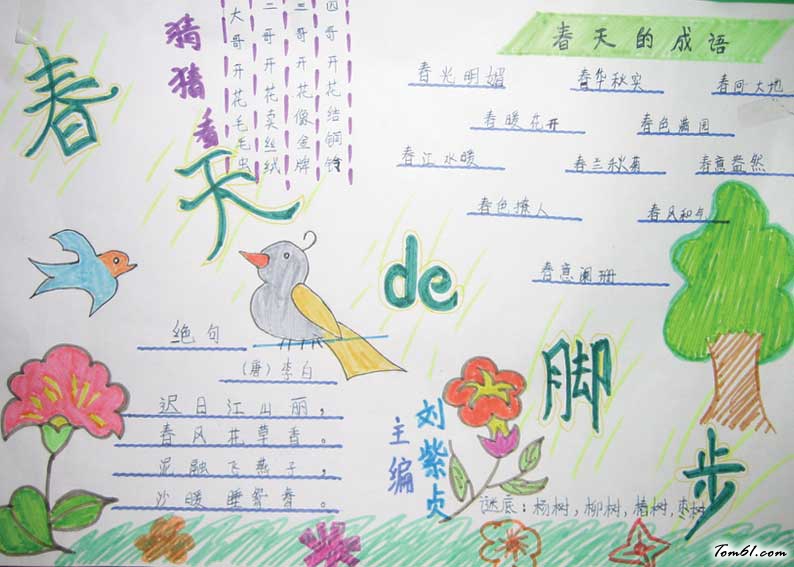 春天de脚步
猜猜看
大哥开花毛毛虫
二哥开花卖丝绒
三哥开花像金牌
四哥开花结铜铃
春天的成语
春光明媚 春华秋实 春回大地
春暖花开 春色满园
春江水暖 春兰秋菊 春意盎然
春色撩人 春风和气
春意阑珊
绝句
（唐）李白
迟日江山丽，
春风花草香。
泥融飞燕子，
沙暖睡鸳鸯。
主编
刘紫贞
谜底：杨树，柳树，椿树，枣树
Tom61.com